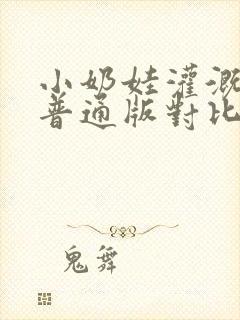 小奶娃灌溉
普通版對比
鬼舞